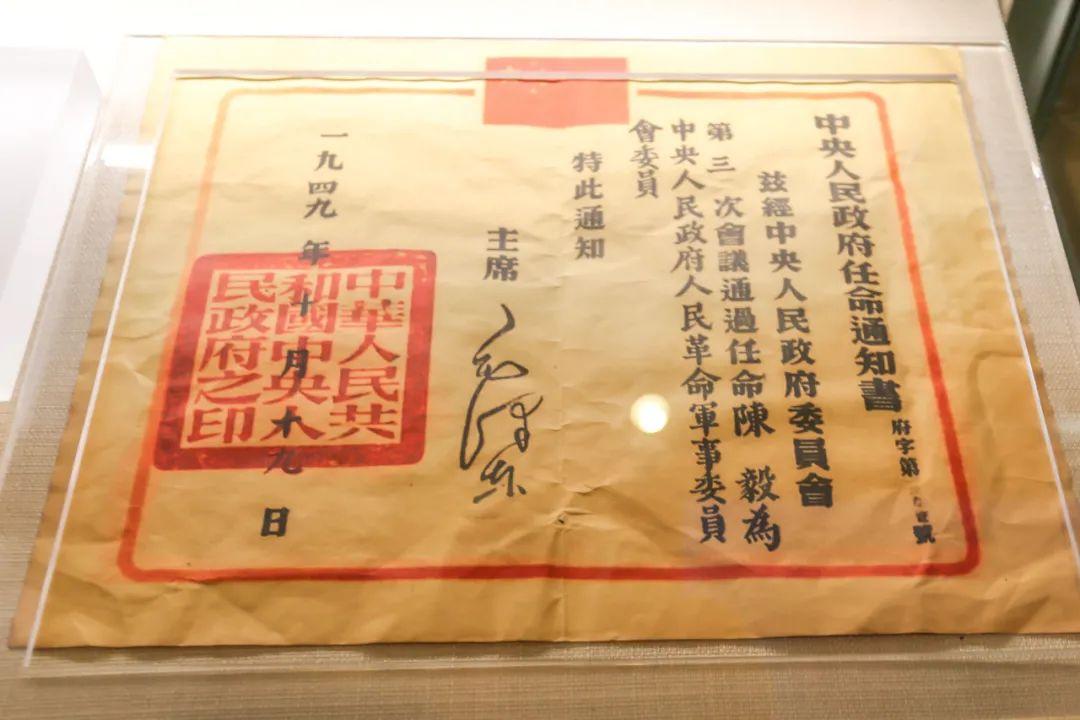 中央人民政府任命通知書
府字第 號
茲經中央人民政府委員會
第三次會議通過任命陳毅為
中央人民政府人民革命軍事委員
會委員
特此通知
主席 毛澤东
一九四九年十月十九日
中華人民共
和國中央人
民政府之印